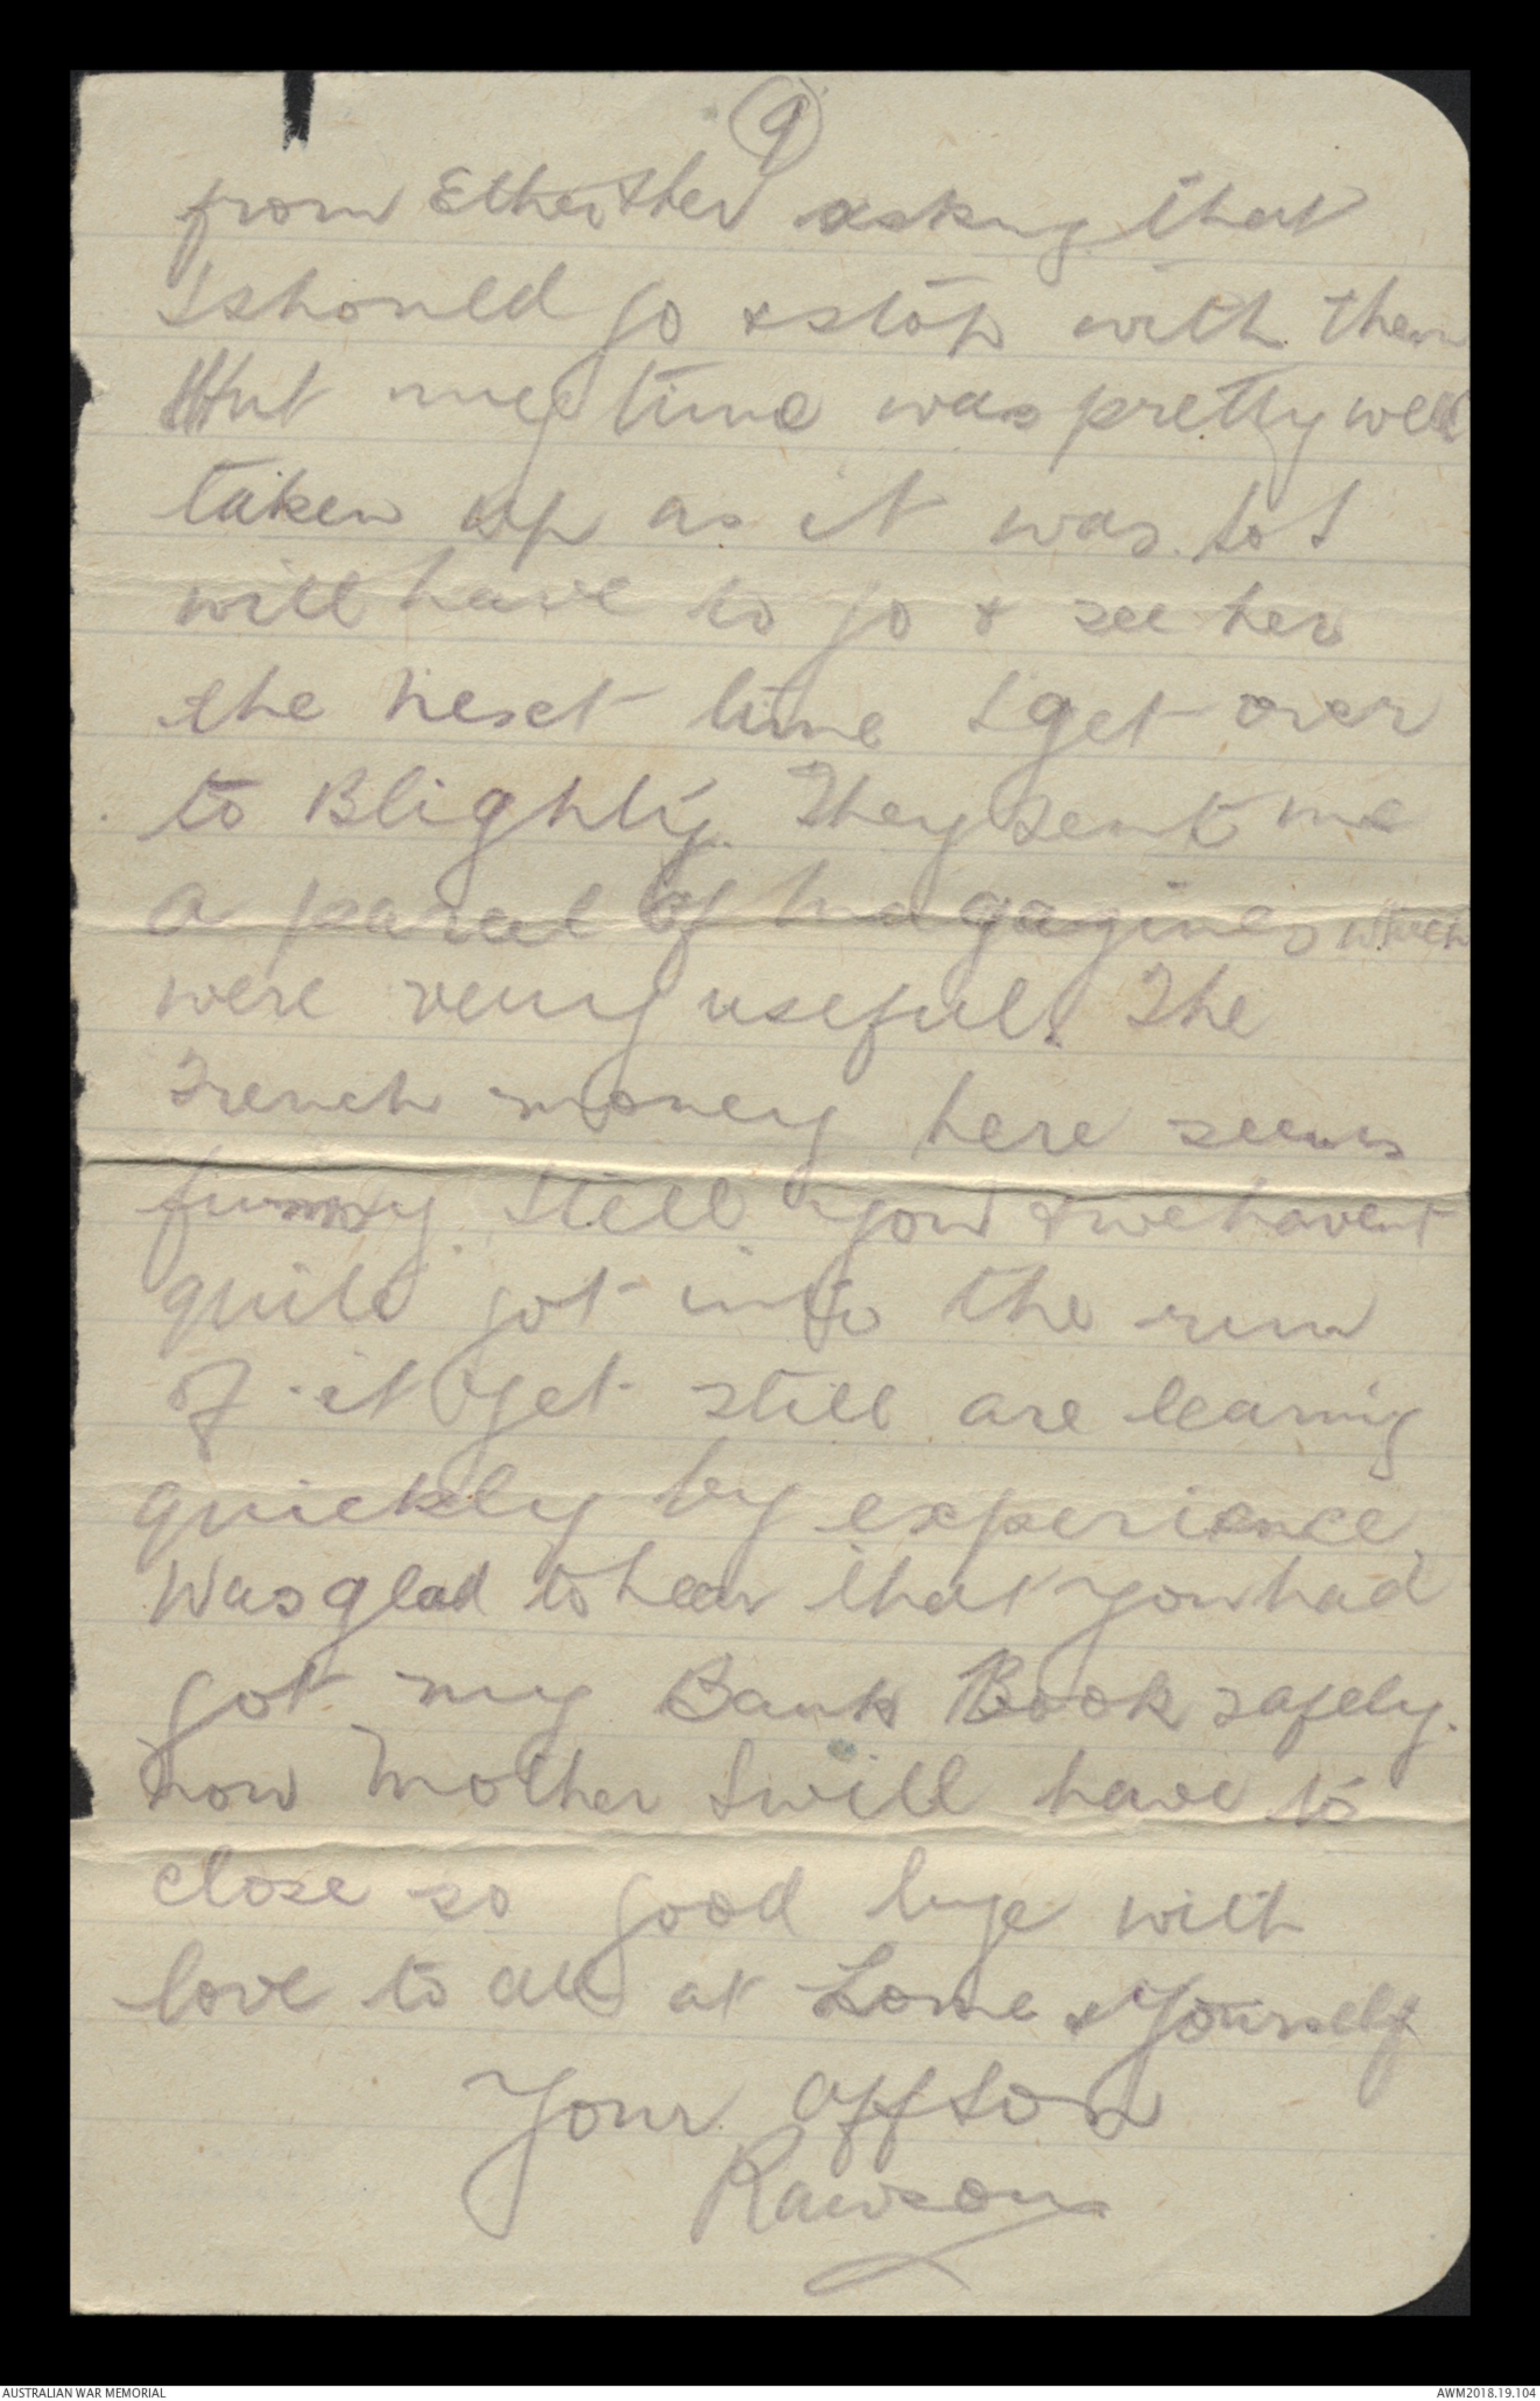 9
from Ether asking that
I should go & stop with them
but my time was pretty well
taken up as it was. So I
will have to go & see her
the next time I get over
to Blighty. They sent me
a parcel of magazines which
were very useful. The
French money here seems
funny still you & we havent
quite got into the run
of it yet still are learning
quickly by experience.
Was glad to hear that you had
got my Bank Book safely.
now Mother I will have to
close so good bye with
love to all at Lorne & Yourself
Your Aff Son
Rawson
AUSTRALIAN WAR MEMORIAL
AWM2018.19.104